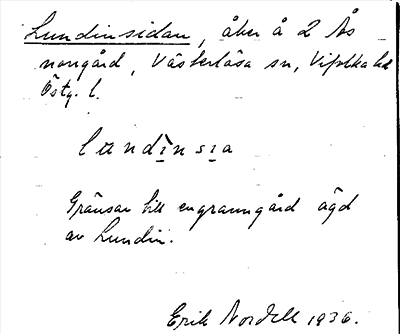 Lundinsidan, åker å 2 Ås
norrgård, Västerlösa sn, Vifolka hd
Östg. l.
lundìnsıa
Gränsar till en granngård ägd
av Lundin.
Erik Nordell 1936.